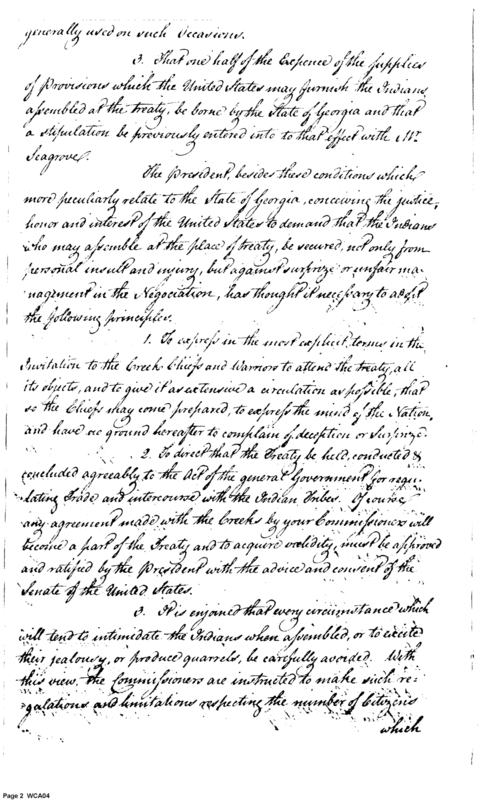 generally used on such Occasions.
3. That one half of the Expence of the supplies
of Provisions which the United States may furnish the Indians,
assembled at the treaty, be borne by the State of Georgia and that
a stipulation be previously entered into to that effect with Mr.
Seagrove.
The President, besides these conditions which
more peculiarly relate to the State of Georgia, conceiving the justice,
honor and interest of the United States to demand that the Indians
who may assemble at the place of treaty, be secured, not only from
personal insult and injury, but against surprize or unfair ma-
nagement in the Negociation, has thought it necessary to adopt
the following principles.
1. To express in the most explicit terms in the
Invitation to the Creek Chiefs and Warriors to attend the treaty, all
its objects, and to give it as extensive a circulation as possible, that
so the Chiefs may come prepared, to express the mind of the Nation,
and have no ground hereafter to complain of deception or surprize.
2. To direct that the Treaty be held, conducted &
concluded agreeably to the Act of the general Government for regu-
lating Trade and intercourse with the Indian Tribes. Of course
any agreement made with the Creeks by your Commissioners will
become a part of the Treaty and to acquire validity, must be approved
and ratified by the President with the advice and consent of the
Senate of the United States.
3. It is enjoined that every circumstance which
will tend to intimidate the Indians when assembled, or to excite
their jealousy, or produce quarrels, be carefully avoided. With
this view, the Commissioners are instructed to make such re-
gulations and limitations respecting the number of Citizens
which
Page 2 WCA04